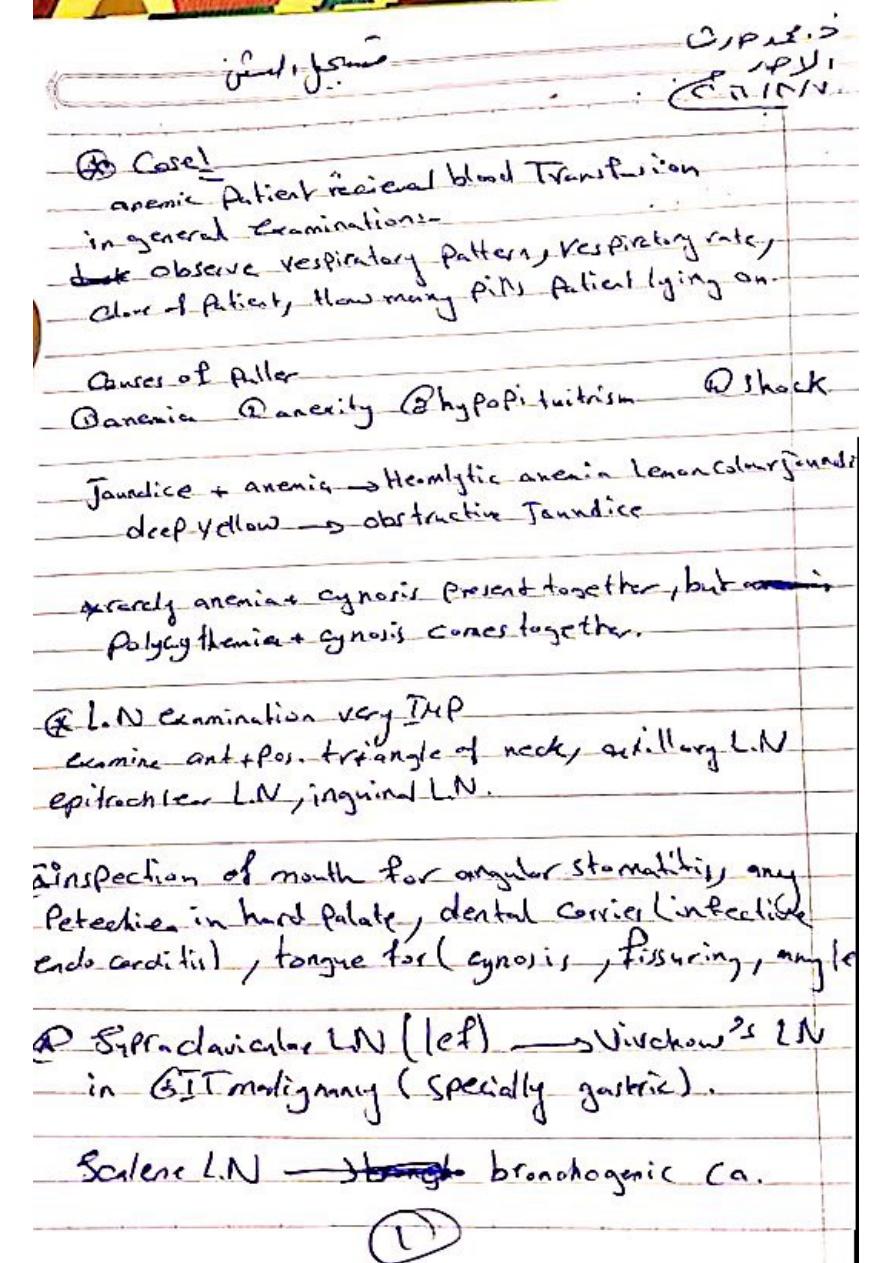 د. محمد حارث
الاحد
تسجيل
⊛ Case 1
anemic Patient recieved blood Transfusion
in general examination:-
observe respiratory pattern, respiratory rate,
of Patient, How many Patient lying on.
Causes of Pallor
① anemia ② anexity ③ hypopituitrism ④ shock
Jaundice + anemia → Heomlytic anemia lemon colour Jaundi
deep yellow → obstructive Jaundice
* rarely anemia + cynosis Present together, but
Polycythemia + cynosis comes together.
⊛ L.N examination very IMP
examine ant + Pos. triangle of neck, axillary L.N
epitrochlear L.N, inguinal L.N.
inspection of mouth for angular stomatitis, any
Petechiea in hard Palate, dental carries (infective
endo carditis), tongue for ( cynosis, fissuring,
Supraclavicular LN (lef) → Virchow's LN
in GIT malignancy ( specially gastric).
Scalene L.N → bronohogenic Ca.
1